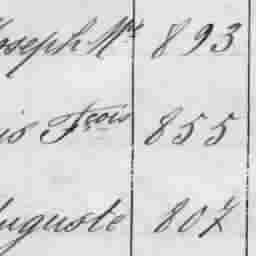 Joseph Mie 893
is Fçois 855
Auguste 807